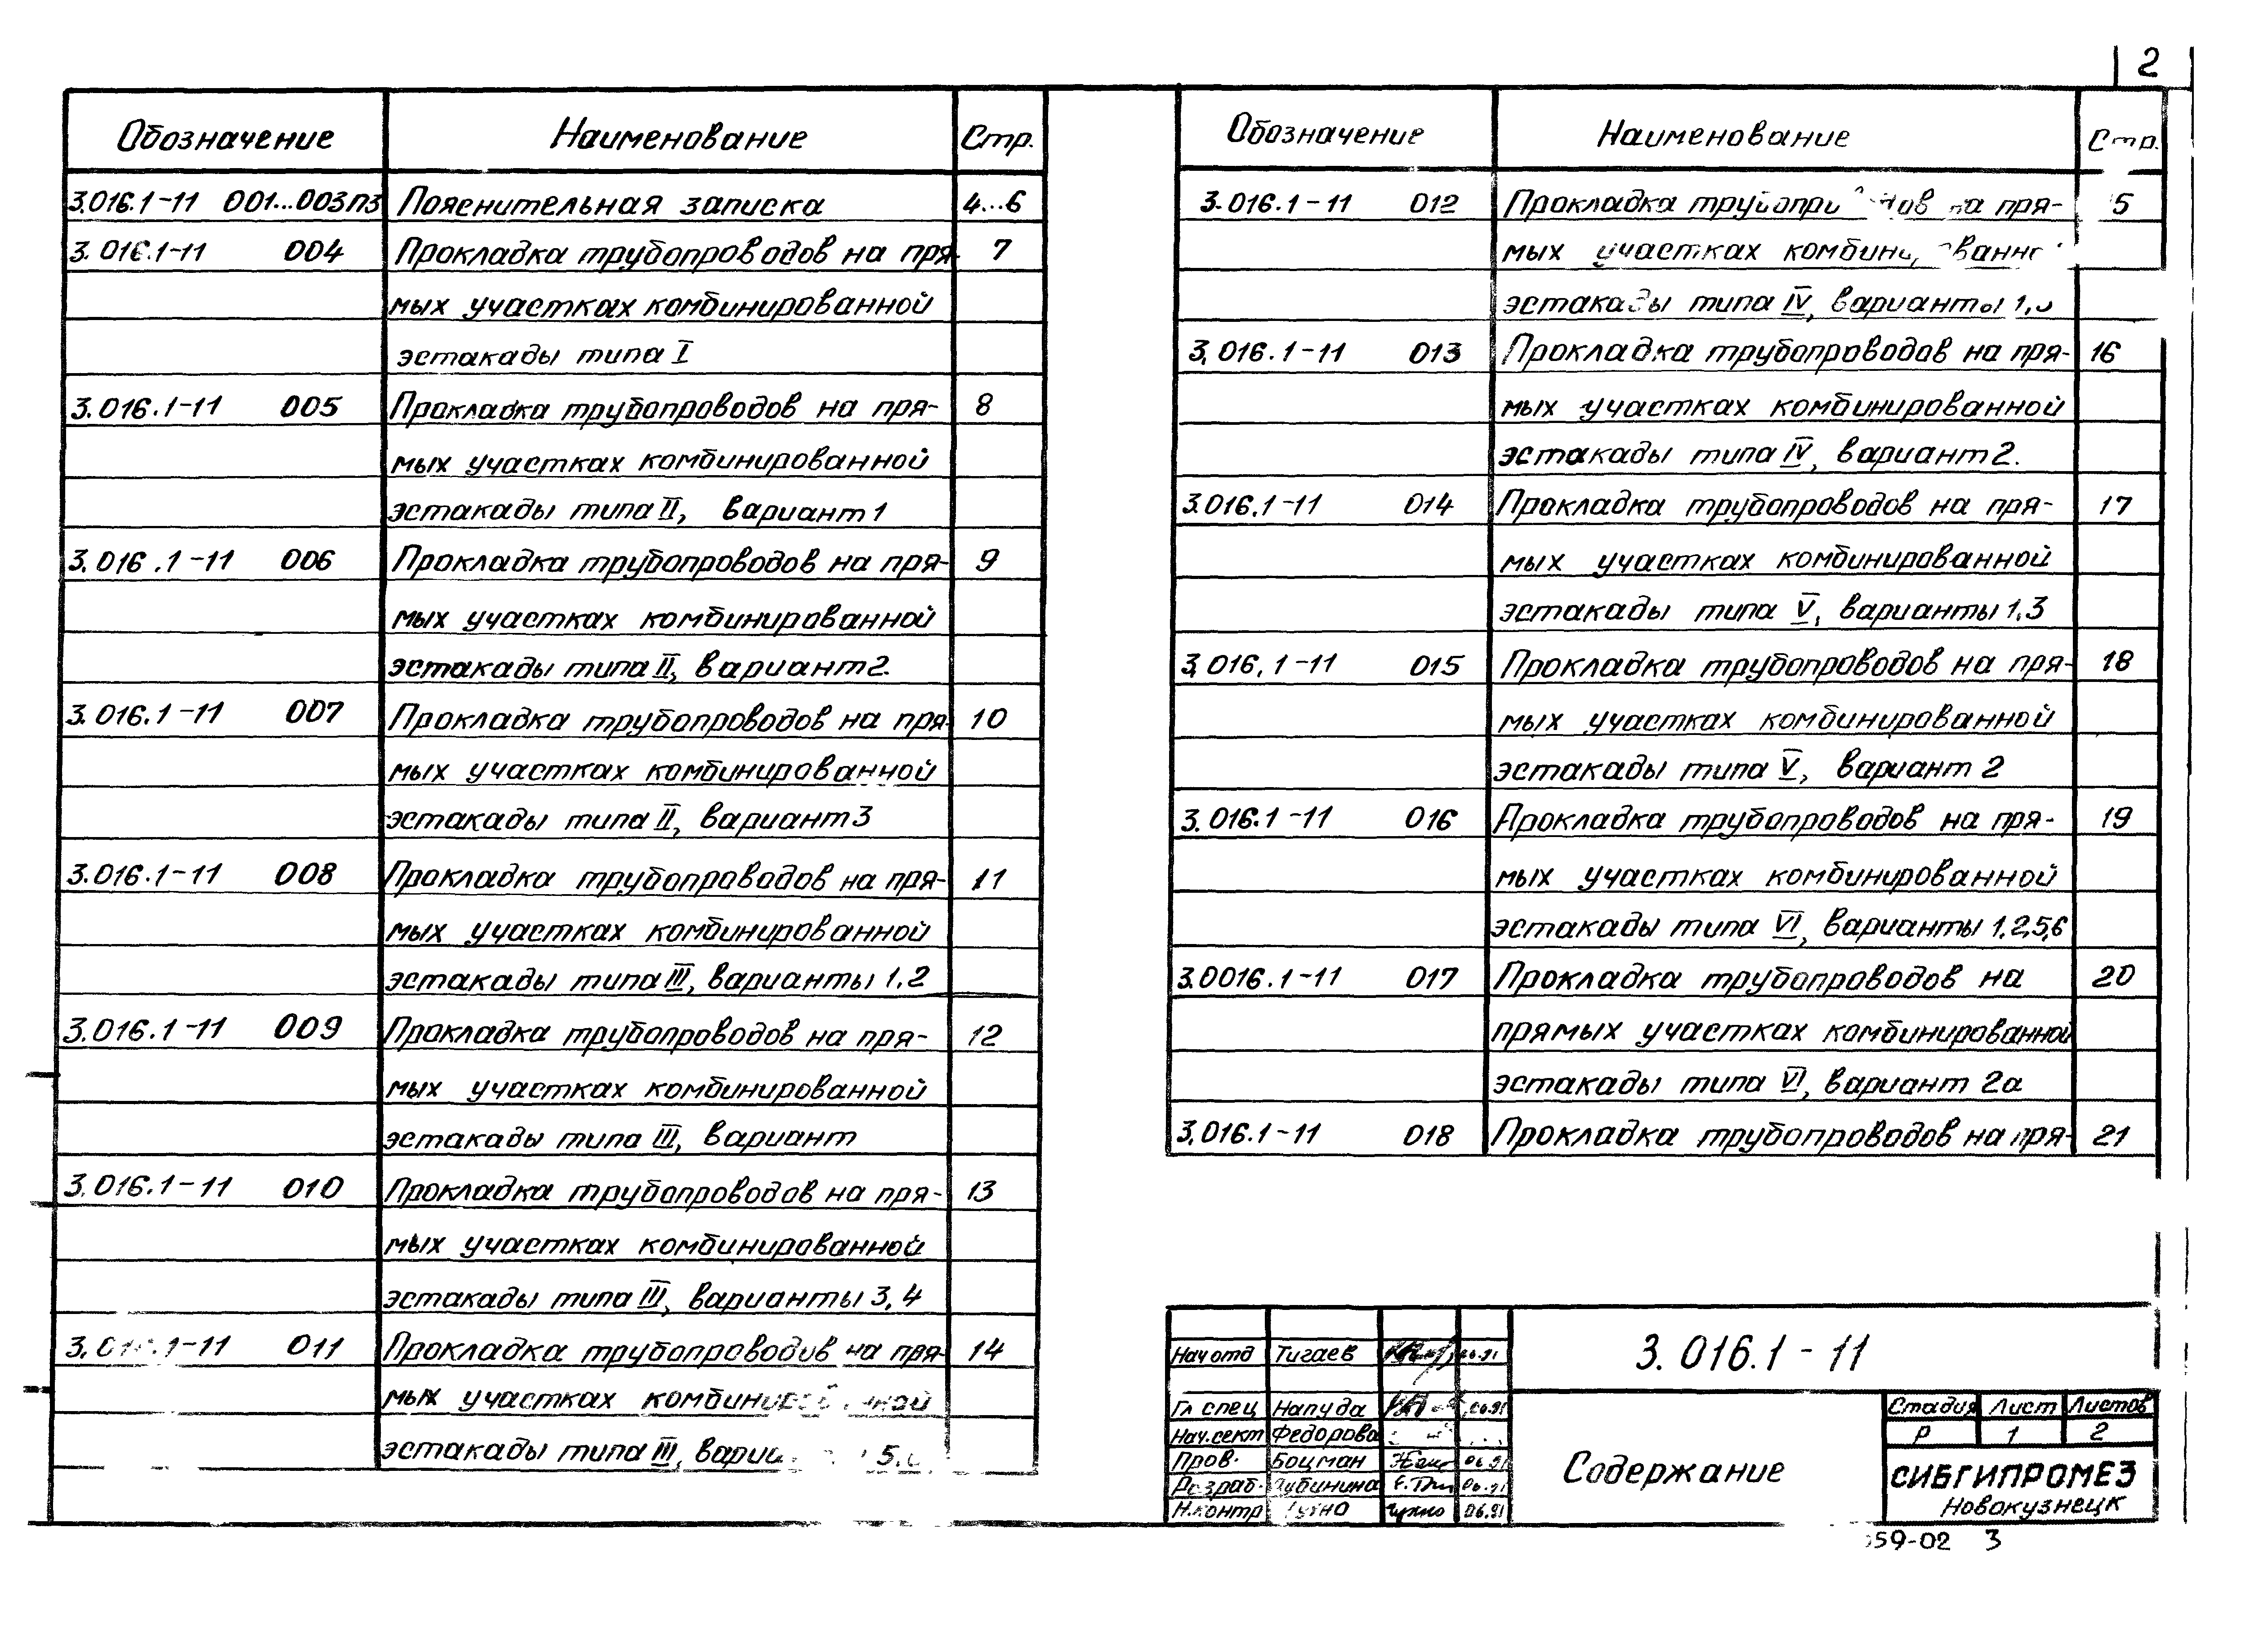 2
Обозначение Наименование Стр.
3.016.1-11 001...003ПЗ Пояснительная записка 4...6
3.016.1-11 004 Прокладка трубопроводов на пря- 7
мых участках комбинированной
эстакады типа I
3.016.1-11 005 Прокладка трубопроводов на пря- 8
мых участках комбинированной
эстакады типа II, вариант 1
3.016.1-11 006 Прокладка трубопроводов на пря- 9
мых участках комбинированной
эстакады типа II, вариант 2.
3.016.1-11 007 Прокладка трубопроводов на пря- 10
мых участках комбинированной
эстакады типа II, вариант 3
3.016.1-11 008 Прокладка трубопроводов на пря- 11
мых участках комбинированной
эстакады типа III, варианты 1.2
3.016.1-11 009 Прокладка трубопроводов на пря- 12
мых участках комбинированной
эстакады типа III, вариант
3.016.1-11 010 Прокладка трубопроводов на пря- 13
мых участках комбинированной
эстакады типа III, варианты 3,4
3.016.1-11 011 Прокладка трубопроводов на пря- 14
мых участках
эстакады типа III,
Обозначение Наименование Стр.
3.016.1-11 012 Прокладка трубопроводов на пря-
мых участках
эстакады типа IV, варианты
3.016.1-11 013 Прокладка трубопроводов на пря- 16
мых участках комбинированной
эстакады типа IV, вариант 2.
3.016.1-11 014 Прокладка трубопроводов на пря- 17
мых участках комбинированной
эстакады типа V, варианты 1.3
3.016.1-11 015 Прокладка трубопроводов на пря- 18
мых участках комбинированной
эстакады типа V, вариант 2
3.016.1-11 016 Прокладка трубопроводов на пря- 19
мых участках комбинированной
эстакады типа VI, варианты 1,2,5,6
3.0016.1-11 017 Прокладка трубопроводов на 20
прямых участках комбинированной
эстакады типа VI, вариант 2а
3.016.1-11 018 Прокладка трубопроводов на пря- 21
3.016.1-11
Нач отд Тигаев
Гл спец Напуда 06.91
Нач.сект Федорова
Пров. Боцман 06.91
Разраб. 06.91
Н.контр 06.91
Содержание
Стадия Лист Листов
Р 1 2
СИБГИПРОМЕЗ
Новокузнецк
59-02 3